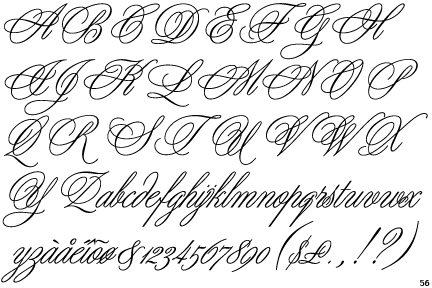 A B C D E F G H
I J K L M N O P
Q R S T U V W X
Y Z a b c d e f g h i j k l m n o p q r s t u v w x
y z à å é î õ ø & 1 2 3 4 5 6 7 8 9 0 ( $ £ . , ! ? )
56